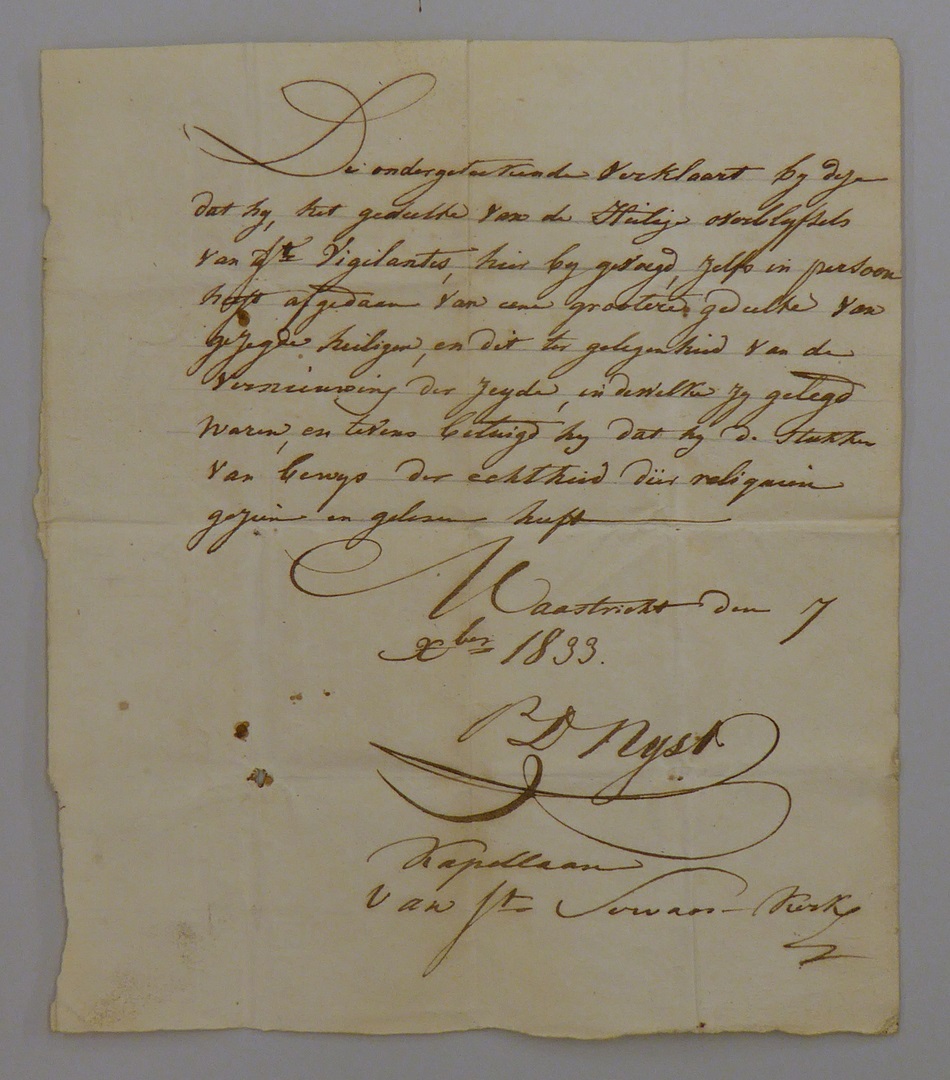 De ondergeteekende verklaart by deze
dat hy, het gedeelte van de Heilige overblyfsels
van Ste Vigilantes, hier by gevoegd, zelfs in persoon
heeft afgedaan van eene grootere gedeelte van
gezegde heiligen, en dit ter gelegenheid van de
vernieuwing der zeyde, in dewelke zy gelegd
waren, en tevens betuigd hy dat hy de stukken
van bewys der echtheid dier reliquien
gezien en gelesen heeft
Maastricht den 7
Xber 1833.
P D Nyst
Kapellaan
van St Servaas-Kerk